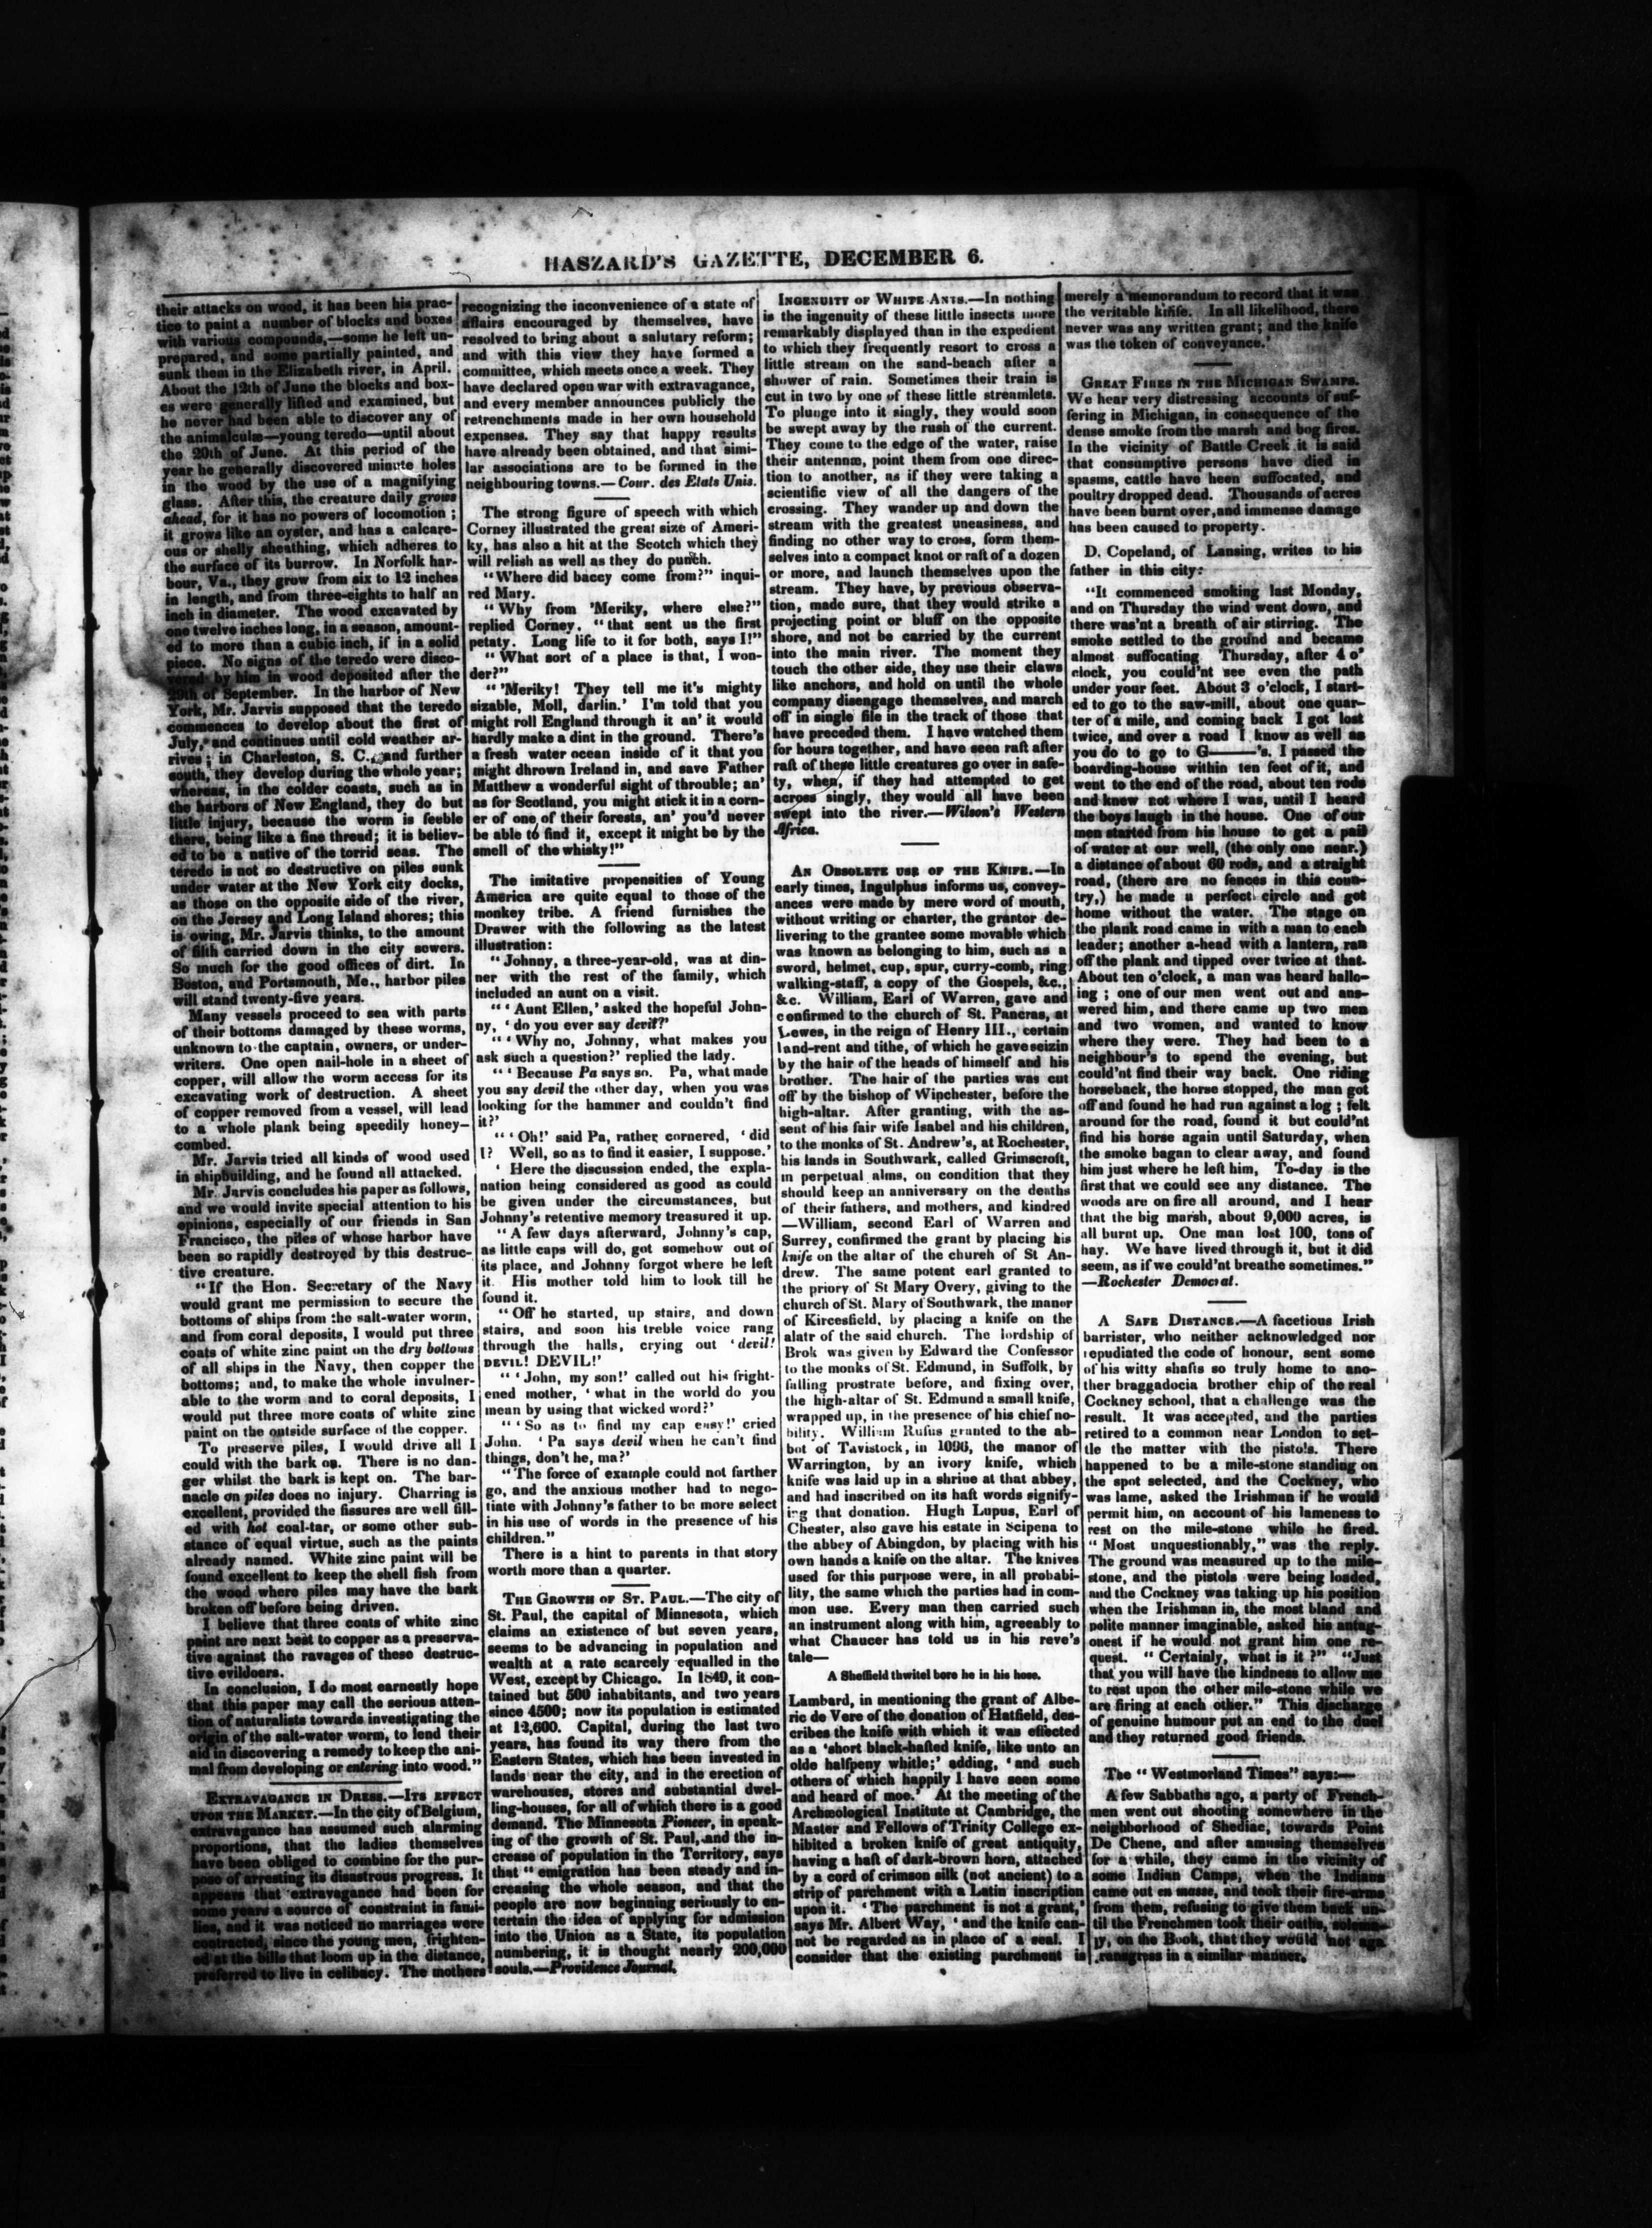 HASZARD'S GAZETTE, DECEMBER 6.
their attacks on wood, it has been his prac-
tice to paint a number of blocks and boxes
with various compounds,—some he left un-
prepared, and some partially painted, and
sunk them in the Elizabeth river, in April.
About the 12th of June the blocks and box-
es were generally lifted and examined, but
he never had been able to discover any of
the animalculæ—young teredo—until about
the 20th of June. At this period of the
year he generally discovered minute holes
in the wood by the use of a magnifying
glass. After this, the creature daily grows
ahead, for it has no powers of locomotion ;
it grows like an oyster, and has a calcare-
ous or shelly sheathing, which adheres to
the surface of its burrow. In Norfolk har-
bour, Va., they grow from six to 12 inches
in length, and from three-eights to half an
inch in diameter. The wood excavated by
one twelve inches long, in a season, amount-
ed to more than a cubic inch, if in a solid
piece. No signs of the teredo were disco-
vered by him in wood deposited after the
29th of September. In the harbor of New
York, Mr. Jarvis supposed that the teredo
commences to develop about the first of
July, and continues until cold weather ar-
rives; in Charleston, S. C., and further
south, they develop during the whole year;
whereas, in the colder coasts, such as in
the harbors of New England, they do but
little injury, because the worm is feeble
there, being like a fine thread; it is believ-
ed to be a native of the torrid seas. The
teredo is not so destructive on piles sunk
under water at the New York city docks,
as those on the opposite side of the river,
on the Jersey and Long Island shores; this
is owing, Mr. Jarvis thinks, to the amount
of filth carried down in the city sewers.
So much for the good offices of dirt. In
Boston, and Portsmouth, Me., harbor piles
will stand twenty-five years.
Many vessels proceed to sea with parts
of their bottoms damaged by these worms,
unknown to the captain, owners, or under-
writers. One open nail-hole in a sheet of
copper, will allow the worm access for its
excavating work of destruction. A sheet
of copper removed from a vessel, will lead
to a whole plank being speedily honey-
combed.
Mr. Jarvis tried all kinds of wood used
in shipbuilding, and he found all attacked.
Mr. Jarvis concludes his paper as follows,
and we would invite special attention to his
opinions, especially of our friends in San
Francisco, the piles of whose harbor have
been so rapidly destroyed by this destruc-
tive creature.
"If the Hon. Secretary of the Navy
would grant me permission to secure the
bottoms of ships from the salt-water worm,
and from coral deposits, I would put three
coats of white zinc paint on the dry bottoms
of all ships in the Navy, then copper the
bottoms; and, to make the whole invulner-
able to the worm and to coral deposits, I
would put three more coats of white zinc
paint on the outside surface of the copper.
To preserve piles, I would drive all I
could with the bark on. There is no dan-
ger whilst the bark is kept on. The bar-
nacle on piles does no injury. Charring is
excellent, provided the fissures are well fill-
ed with hot coal-tar, or some other sub-
stance of equal virtue, such as the paints
already named. White zinc paint will be
found excellent to keep the shell fish from
the wood where piles may have the bark
broken off before being driven.
I believe that three coats of white zinc
paint are next best to copper as a preserva-
tive against the ravages of these destruc-
tive evildoers.
In conclusion, I do most earnestly hope
that this paper may call the serious atten-
tion of naturalists towards investigating the
origin of the salt-water worm, to lend their
aid in discovering a remedy to keep the ani-
mal from developing or entering into wood."
EXTRAVAGANCE IN DRESS.—ITS EFFECT
UPON THE MARKET.—In the city of Belgium,
extravagance has assumed such alarming
proportions, that the ladies themselves
have been obliged to combine for the pur-
pose of arresting its disastrous progress. It
appears that extravagance had been for
some years a source of constraint in fami-
lies, and it was noticed no marriages were
contracted, since the young men, frighten-
ed at the bills that loom up in the distance,
preferred to live in celibacy. The mothers
recognizing the inconvenience of a state of
affairs encouraged by themselves, have
resolved to bring about a salutary reform;
and with this view they have formed a
committee, which meets once a week. They
have declared open war with extravagance,
and every member announces publicly the
retrenchments made in her own household
expenses. They say that happy results
have already been obtained, and that simi-
lar associations are to be formed in the
neighbouring towns.—Cour. des Etats Unis.
The strong figure of speech with which
Corney illustrated the great size of Ameri-
ky, has also a hit at the Scotch which they
will relish as well as they do punch.
"Where did baccy come from?" inqui-
red Mary.
"Why from 'Meriky, where else?"
replied Corney, "that sent us the first
petaty. Long life to it for both, says I!"
"What sort of a place is that, I won-
der?"
"'Meriky! They tell me it's mighty
sizable, Moll, darlin.' I'm told that you
might roll England through it an' it would
hardly make a dint in the ground. There's
a fresh water ocean inside of it that you
might dhrown Ireland in, and save Father
Matthew a wonderful sight of throuble; an'
as for Scotland, you might stick it in a corn-
er of one of their forests, an' you'd never
be able to find it, except it might be by the
smell of the whisky!"
The imitative propensities of Young
America are quite equal to those of the
monkey tribe. A friend furnishes the
Drawer with the following as the latest
illustration:
"Johnny, a three-year-old, was at din-
ner with the rest of the family, which
included an aunt on a visit.
"'Aunt Ellen,' asked the hopeful John-
ny, 'do you ever say devil?'
"'Why no, Johnny, what makes you
ask such a question?' replied the lady.
"'Because Pa says so. Pa, what made
you say devil the other day, when you was
looking for the hammer and couldn't find
it?'
"'Oh!' said Pa, rather cornered, 'did
I? Well, so as to find it easier, I suppose.'
' Here the discussion ended, the expla-
nation being considered as good as could
be given under the circumstances, but
Johnny's retentive memory treasured it up.
"A few days afterward, Johnny's cap,
as little caps will do, got somehow out of
its place, and Johnny forgot where he left
it. His mother told him to look till he
found it.
"Off he started, up stairs, and down
stairs, and soon his treble voice rang
through the halls, crying out 'devil!
DEVIL! DEVIL!'
"'John, my son!' called out his fright-
ened mother, 'what in the world do you
mean by using that wicked word?'
"'So as to find my cap easy!' cried
John. 'Pa says devil when he can't find
things, don't he, ma?'
"The force of example could not farther
go, and the anxious mother had to nego-
tiate with Johnny's father to be more select
in his use of words in the presence of his
children."
There is a hint to parents in that story
worth more than a quarter.
THE GROWTH OF ST. PAUL.—The city of
St. Paul, the capital of Minnesota, which
claims an existence of but seven years,
seems to be advancing in population and
wealth at a rate scarcely equalled in the
West, except by Chicago. In 1849, it con-
tained but 500 inhabitants, and two years
since 4500; now its population is estimated
at 12,600. Capital, during the last two
years, has found its way there from the
Eastern States, which has been invested in
lands near the city, and in the erection of
warehouses, stores and substantial dwel-
ling-houses, for all of which there is a good
demand. The Minnesota Pioneer, in speak-
ing of the growth of St. Paul, and the in-
crease of population in the Territory, says
that "emigration has been steady and in-
creasing the whole season, and that the
people are now beginning seriously to en-
tertain the idea of applying for admission
into the Union as a State, its population
numbering, it is thought nearly 200,000
souls.—Providence Journal.
INGENUITY OF WHITE ANTS.—In nothing
is the ingenuity of these little insects more
remarkably displayed than in the expedient
to which they frequently resort to cross a
little stream on the sand-beach after a
shower of rain. Sometimes their train is
cut in two by one of these little streamlets.
To plunge into it singly, they would soon
be swept away by the rush of the current.
They come to the edge of the water, raise
their antennæ, point them from one direc-
tion to another, as if they were taking a
scientific view of all the dangers of the
crossing. They wander up and down the
stream with the greatest uneasiness, and
finding no other way to cross, form them-
selves into a compact knot or raft of a dozen
or more, and launch themselves upon the
stream. They have, by previous observa-
tion, made sure, that they would strike a
projecting point or bluff on the opposite
shore, and not be carried by the current
into the main river. The moment they
touch the other side, they use their claws
like anchors, and hold on until the whole
company disengage themselves, and march
off in single file in the track of those that
have preceded them. I have watched them
for hours together, and have seen raft after
raft of these little creatures go over in safe-
ty, when, if they had attempted to get
across singly, they would all have been
swept into the river.—Wilson's Western
Africa.
AN OBSOLETE USE OF THE KNIFE.—In
early times, Ingulphus informs us, convey-
ances were made by mere word of mouth,
without writing or charter, the grantor de-
livering to the grantee some movable which
was known as belonging to him, such as a
sword, helmet, cup, spur, curry-comb, ring
walking-staff, a copy of the Gospels, &c.,
&c. William, Earl of Warren, gave and
confirmed to the church of St. Pancras, at
Lewes, in the reign of Henry III., certain
land-rent and tithe, of which he gave seizin
by the hair of the heads of himself and his
brother. The hair of the parties was cut
off by the bishop of Winchester, before the
high-altar. After granting, with the as-
sent of his fair wife Isabel and his children,
to the monks of St. Andrew's, at Rochester,
his lands in Southwark, called Grimscroft,
in perpetual alms, on condition that they
should keep an anniversary on the deaths
of their fathers, and mothers, and kindred
—William, second Earl of Warren and
Surrey, confirmed the grant by placing his
knife on the altar of the church of St An-
drew. The same potent earl granted to
the priory of St Mary Overy, giving to the
church of St. Mary of Southwark, the manor
of Kircesfield, by placing a knife on the
alatr of the said church. The lordship of
Brok was given by Edward the Confessor
to the monks of St. Edmund, in Suffolk, by
falling prostrate before, and fixing over,
the high-altar of St. Edmund a small knife,
wrapped up, in the presence of his chief no-
bility. William Rufus granted to the ab-
bot of Tavistock, in 1096, the manor of
Warrington, by an ivory knife, which
knife was laid up in a shrine at that abbey,
and had inscribed on its haft words signify-
ing that donation. Hugh Lupus, Earl of
Chester, also gave his estate in Scipena to
the abbey of Abingdon, by placing with his
own hands a knife on the altar. The knives
used for this purpose were, in all probabi-
lity, the same which the parties had in com-
mon use. Every man then carried such
an instrument along with him, agreeably to
what Chaucer has told us in his reve's
tale—
A Sheffield thwitel bore he in his hose.
Lambard, in mentioning the grant of Albe-
ric de Vere of the donation of Hatfield, des-
cribes the knife with which it was effected
as a 'short black-hafted knife, like unto an
olde halfpeny whitle;' adding, 'and such
others of which happily I have seen some
and heard of moe.' At the meeting of the
Archæological Institute at Cambridge, the
Master and Fellows of Trinity College ex-
hibited a broken knife of great antiquity,
having a haft of dark-brown horn, attached
by a cord of crimson silk (not ancient) to a
strip of parchment with a Latin inscription
upon it. 'The parchment is not a grant,'
says Mr. Albert Way, 'and the knife can-
not be regarded as in place of a seal. I
consider that the existing parchment is
merely a memorandum to record that it was
the veritable knife. In all likelihood, there
never was any written grant; and the knife
was the token of conveyance.'
GREAT FIRES IN THE MICHIGAN SWAMPS.
We hear very distressing accounts of suf-
fering in Michigan, in consequence of the
dense smoke from the marsh and bog fires.
In the vicinity of Battle Creek it is said
that consumptive persons have died in
spasms, cattle have been suffocated, and
poultry dropped dead. Thousands of acres
have been burnt over, and immense damage
has been caused to property.
D. Copeland, of Lansing, writes to his
father in this city:
"It commenced smoking last Monday,
and on Thursday the wind went down, and
there was'nt a breath of air stirring. The
smoke settled to the ground and became
almost suffocating Thursday, after 4 o'
clock, you could'nt see even the path
under your feet. About 3 o'clock, I start-
ed to go to the saw-mill, about one quar-
ter of a mile, and coming back I got lost
twice, and over a road I know as well as
you do to go to G———'s. I passed the
boarding-house within ten feet of it, and
went to the end of the road, about ten rods
and knew not where I was, until I heard
the boys laugh in the house. One of our
men started from his house to get a pail
of water at our well, (the only one near.)
a distance of about 60 rods, and a straight
road, (there are no fences in this coun-
try,) he made a perfect circle and got
home without the water. The stage on
the plank road came in with a man to each
leader; another a-head with a lantern, ran
off the plank and tipped over twice at that.
About ten o'clock, a man was heard hallo-
ing ; one of our men went out and ans-
wered him, and there came up two men
and two women, and wanted to know
where they were. They had been to a
neighbour's to spend the evening, but
could'nt find their way back. One riding
horseback, the horse stopped, the man got
off and found he had run against a log ; felt
around for the road, found it but could'nt
find his horse again until Saturday, when
the smoke bagan to clear away, and found
him just where he left him, To-day is the
first that we could see any distance. The
woods are on fire all around, and I hear
that the big marsh, about 9,000 acres, is
all burnt up. One man lost 100, tons of
hay. We have lived through it, but it did
seem, as if we could'nt breathe sometimes."
—Rochester Democrat.
A SAFE DISTANCE.—A facetious Irish
barrister, who neither acknowledged nor
repudiated the code of honour, sent some
of his witty shafts so truly home to ano-
ther braggadocia brother chip of the real
Cockney school, that a challenge was the
result. It was accepted, and the parties
retired to a common near London to set-
tle the matter with the pistols. There
happened to be a mile-stone standing on
the spot selected, and the Cockney, who
was lame, asked the Irishman if he would
permit him, on account of his lameness to
rest on the mile-stone while he fired.
"Most unquestionably," was the reply.
The ground was measured up to the mile-
stone, and the pistols were being loaded,
and the Cockney was taking up his position
when the Irishman in, the most bland and
polite manner imaginable, asked his antag-
onest if he would not grant him one re-
quest. "Certainly, what is it?" "Just
that you will have the kindness to allow me
to rest upon the other mile-stone while we
are firing at each other." This discharge
of genuine humour put an end to the duel
and they returned good friends.
The "Westmorland Times" says:—
A few Sabbaths ago, a party of French-
men went out shooting somewhere in the
neighborhood of Shediac, towards Point
De Chene, and after amusing themselves
for a while, they came in the vicinity of
some Indian Camps, when the Indians
came out en masse, and took their fire-arms
from them, refusing to give them back un-
til the Frenchmen took their oaths, solemn-
ly, on the Book, that they would not aga
ransgress in a similar manner.